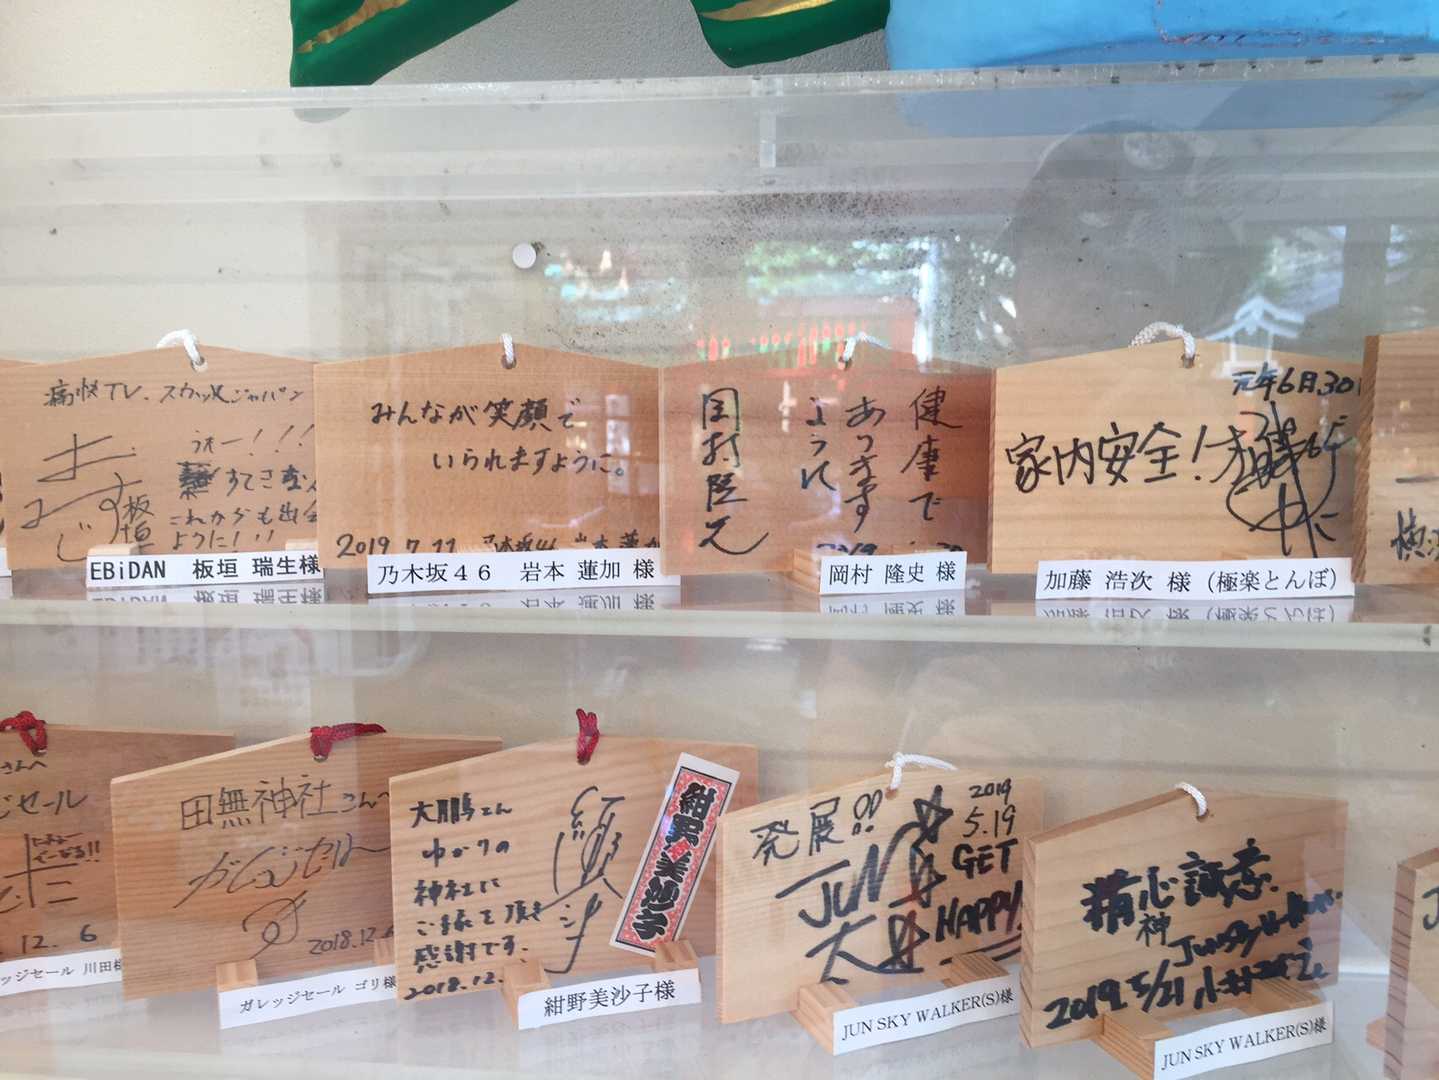 痛快TV、スカッとジャパン
うぉー！！！
すてきな
これからも出会
ように！！
板垣
EBiDAN 板垣 瑞生様
みんなが笑顔で
いられますように。
2019.7.11 乃木坂46 岩本蓮加
乃木坂４６ 岩本 蓮加 様
健康で
あります
ように
岡村隆史
岡村 隆史 様
元年6月30
家内安全！
加藤 浩次 様（極楽とんぼ）
さんへ
じセール
12.6
ッジセール 川田様
田無神社さんへ
ガレッジセール
2018.12.6
ガレッジセール ゴリ様
大鵬さん
ゆかりの
神社に
ご縁を頂き
感謝です。
2018.12.
紺野美沙子
紺野美沙子様
発展!!
2019
5.19
JUN
GET
HAPPY!
JUN SKY WALKER(S)様
精心誠意
神
JunSkyWalkers
2019 5/21
JUN SKY WALKER(S)様